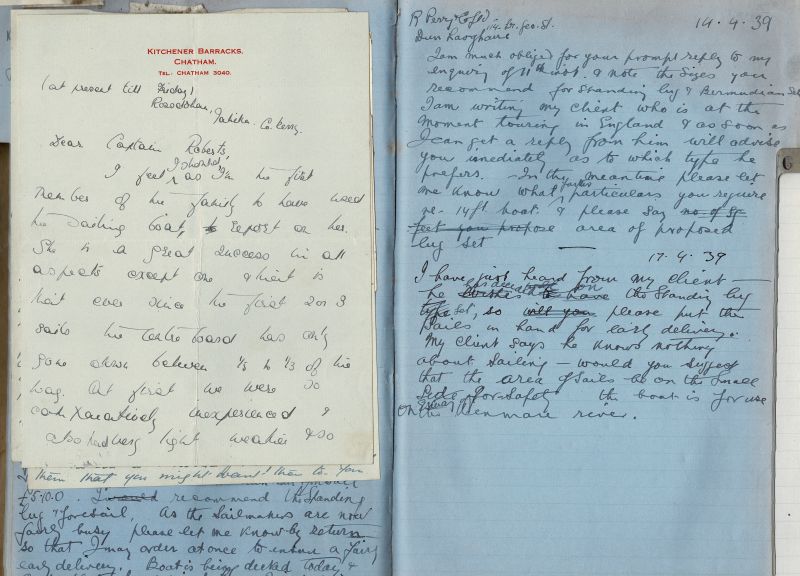 KITCHENER BARRACKS,
CHATHAM.
TEL: CHATHAM 3040.
(at present till Friday)
Tahilla. Co. Kerry.
Dear Captain Roberts,
I feel, I should, as I'm the first
member of the family to have used
the sailing boat, report on her.
She is a great success in all
aspects except one & that is
that ever since the first 2 or 3
sails the centre board has only
gone down between 1/5 to 1/3 of the
way. At first we were so
inexperienced &
also had very light weather & so
them that you might want them to. You
£5.10.0. I would recommend the Standing
lug & foresail, As the Sailmakers are now
fairly busy please let me know by return
so that I may order at once to ensure a fairly
early delivery. Boat is being decked today &
R Perry & Co Ltd 14.4.39
Dun Laoghaire
I am much obliged for your prompt reply to my
enquiry of 11th inst. & note the sizes you
recommend for Standing lug & Bermudian Set
I am writing my client who is at the
moment touring in England & as soon as
I can get a reply from him will advise
you imediately as to which type he
prefers. In the meantime please let
me know what further particulars you require
re- 14 ft boat. & please say no of sq
feet you propose area of proposed
lug set
17.4.39
I have just heard from my client
he has decided on the Standing lug
type Set, so will you please put the
Sails in hand for early delivery.
My client says he knows nothing
about Sailing – would you suggest
that the area of Sails be on the Small
Side for Safety the boat is for use
on the Kenmare river.